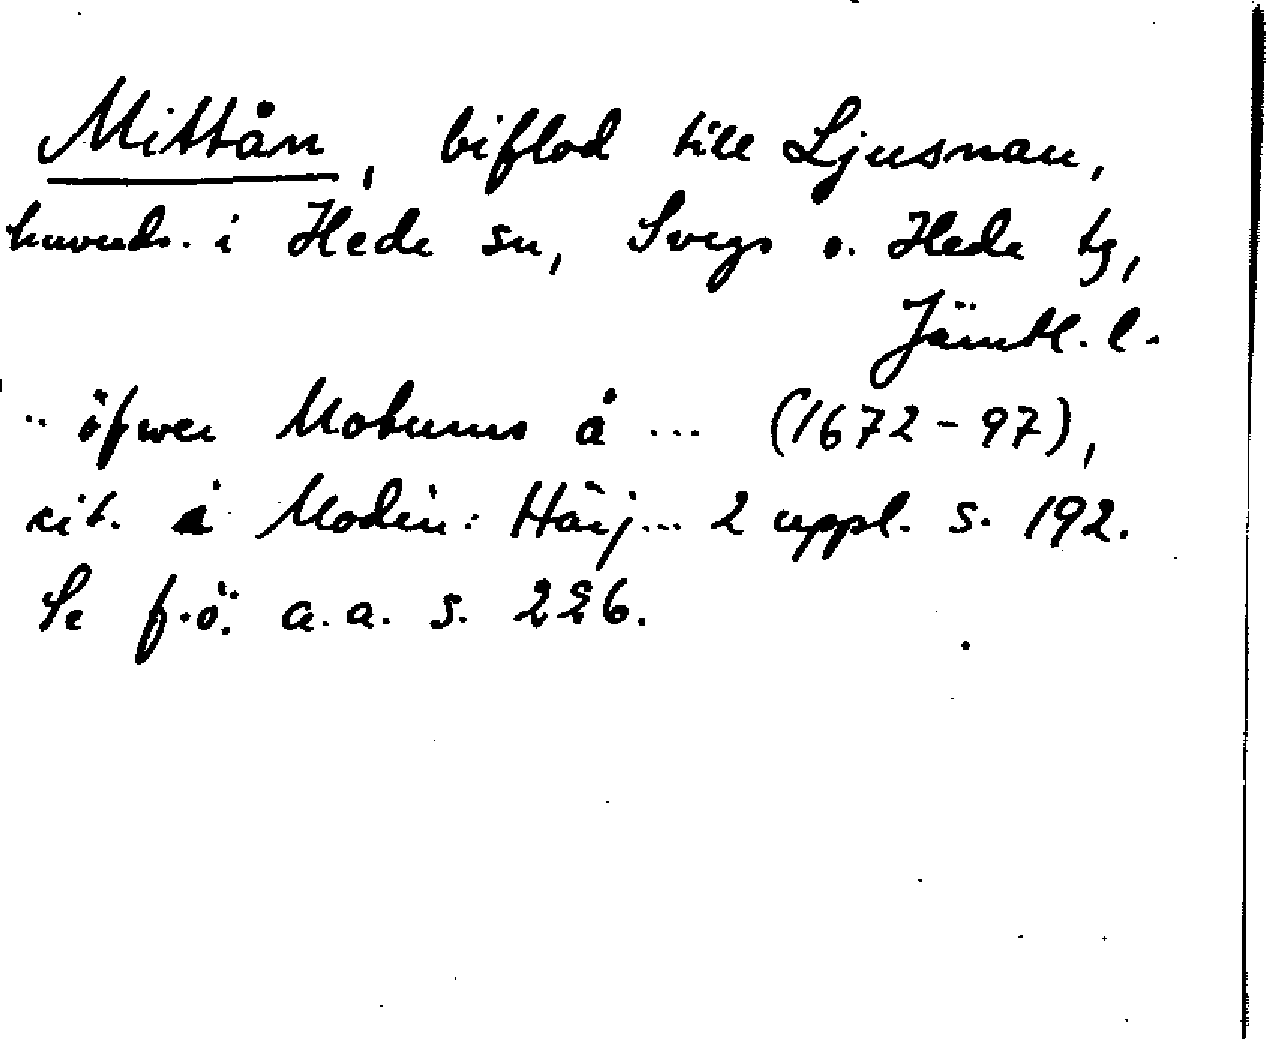 Mittån, biflod till Ljusnan,
huvuds. i Hede sn, Svegs o. Hede tg,
Jämtl. l.
.. öfwer Motums å ... (1672-97),
cit. i Modin: Härj... 2 uppl. s. 192.
Se f.ö. a.a. s. 226.